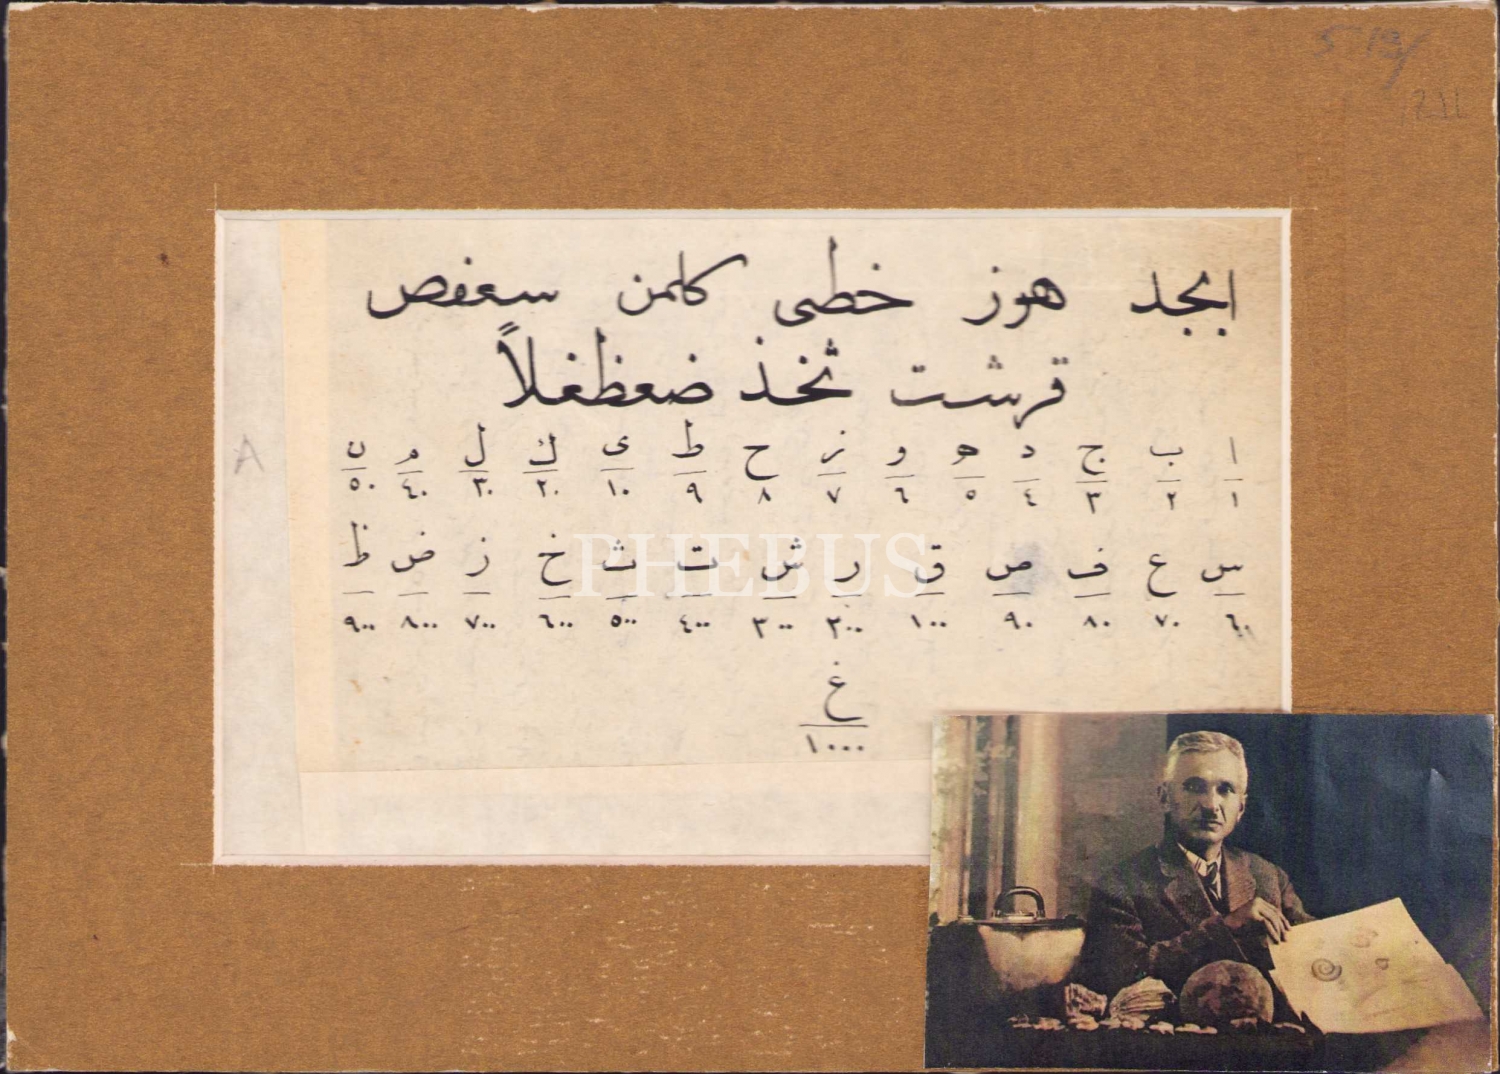 ابجد هوز خطى كلمن سعفص
قرشت ثخذ ضعظغلاً
ا ب ج د ه و ز ح ط ى ك ل م ن
١ ٢ ٣ ٤ ٥ ٦ ٧ ٨ ٩ ١٠ ٢٠ ٣٠ ٤٠ ٥٠
س ع ف ص ق ر ش ت ث خ ز ض ظ
٦٠ ٧٠ ٨٠ ٩٠ ١٠٠ ٢٠٠ ٣٠٠ ٤٠٠ ٥٠٠ ٦٠٠ ٧٠٠ ٨٠٠ ٩٠٠
غ
١٠٠٠
A
PHEBUS